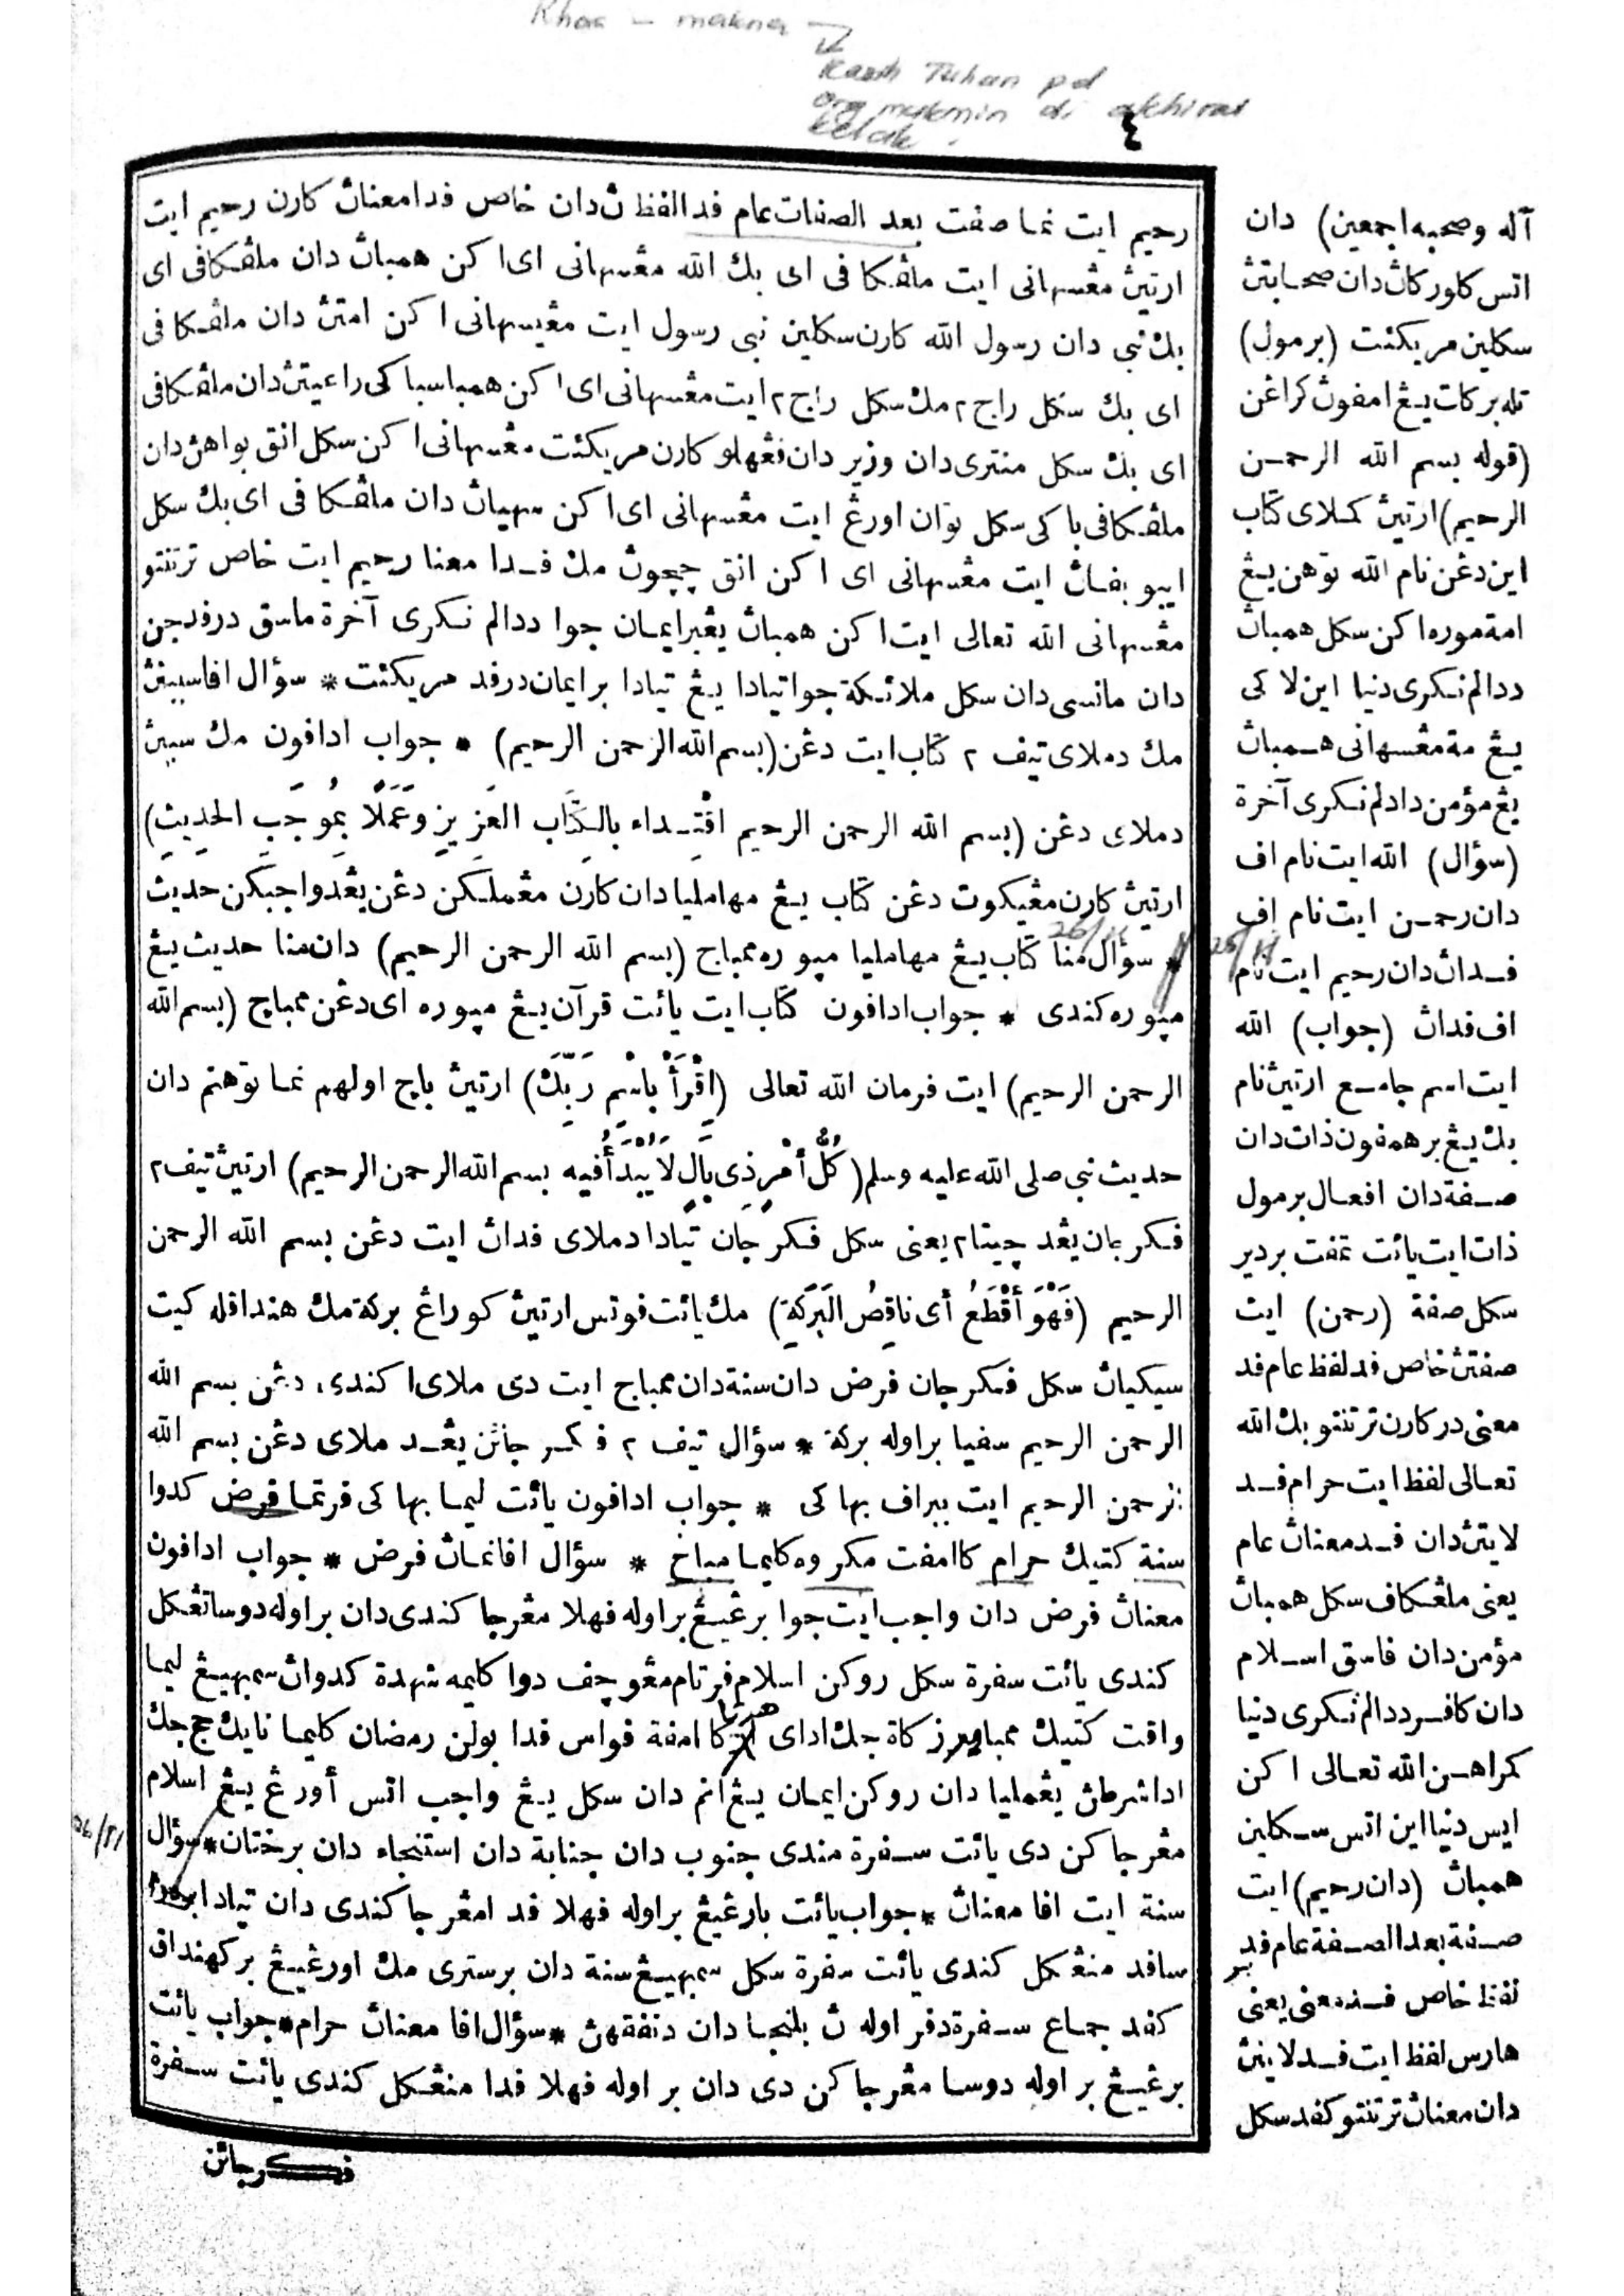 Khas – makna →
Kasih Tuhan pd
org mukmin di akhirat
kelak.
٤
رحيم ايت نما صفت بعد الصفات عام فد الفظ ڽ دان خاص فدا معناڽ كارن رحيم ايت
ارتيڽ مڠسهاني ايت ملڠكافي اي بك الله مڠسهاني اي اكن همباڽ دان ملڠكافي اي
بك نبي دان رسول الله كارن سكلين نبي رسول ايت مڠيسهاني اكن امتڽ دان ملڠكافي
اي بك سكل راج٢ مك سكل راج٢ ايت مڠسهاني اي اكن همبا سباكي راعيتڽ دان ملڠكافي
اي بك سكل منتري دان وزير دان فڠهلو كارن مريكئت مڠسهاني اكن سكل انق بواهڽ دان
ملڠكافي باكي سكل توان اورڠ ايت مڠسهاني اي اكن سهياڽ دان ملڠكافي اي بك سكل
ايبو بفاڽ ايت مڠسهاني اي اكن انق چچوڽ مك فدا معنا رحيم ايت خاص ترتنتو
مڠسهاني الله تعالى ايت اكن همباڽ يڠبرايمان جوا ددالم نكري آخرة ماسق درفد جن
دان مانسي دان سكل ملائكة جوا تيادا يڠ تيادا برايمان درفد مريكئت * سؤال افا سببڽ
مك دملاي تيف ٢ كتاب ايت دڠن (بسم الله الرحمن الرحيم) * جواب ادافون مك سببڽ
دملاي دڠن (بسم الله الرحمن الرحيم اقْتِداء بالكِتَاب العَزِيزِ وَعَمَلًا بِمُوجَبِ الحَدِيثِ)
ارتيڽ كارن مڠيكوت دڠن كتاب يڠ مها مليا دان كارن مڠملكن دڠن يڠدواجبكن حديث
* سؤال منا كتاب يڠ مها مليا ميوره ممباج (بسم الله الرحمن الرحيم) دان منا حديث يڠ
ميوره كندي * جواب ادافون كتاب ايت يائت قرآن يڠ ميوره اي دڠن ممباج (بسم الله
الرحمن الرحيم) ايت فرمان الله تعالى (اِقْرَأْ بِاسْمِ رَبِّكَ) ارتيڽ باج اولهم نما توهنم دان
حديث نبي صلى الله عليه وسلم (كُلُّ أَمْرٍ ذِي بَالٍ لَا يُبْدَأُ فيه بسم الله الرحمن الرحيم) ارتيڽ تيف٢
فكرجان يڠد چيتا٢ يعني سكل فكرجان تيادا دملاي فداڽ ايت دڠن بسم الله الرحمن
الرحيم (فَهُوَ أَقْطَعُ أى نَاقِصُ الْبَرَكَةِ) مك يائت فوتس ارتيڽ كوراڠ بركة مك هندقله كيت
سيكياڽ سكل فكرجان فرض دان سنة دان ممباج ايت دي ملاي اكندي دڠن بسم الله
الرحمن الرحيم سفيا براوله بركة * سؤال تيف ٢ فكرجائن يڠد ملاي دڠن بسم الله
الرحمن الرحيم ايت ببراف بهاكي * جواب ادافون يائت ليما بهاكي فرتما فرض كدوا
سنة كتيك حرام كاامفت مكروه كليما مباح * سؤال افا نماڽ فرض * جواب ادافون
معناڽ فرض دان واجب ايت جوا برڠيڠ براوله فهلا مڠرجاكندي دان براوله دوسا تڠكل
كندي يائت سفرة سكل روكن اسلام فرتام مڠوچف دوا كليمه شهدة كدوان سمبهيڠ ليما
واقت كتيك ممباير زكاة جك اداي هرتا كا امفة فواس فدا بولن رمضان كليما نايك حج جك
اد اشرطڽ يڠمليا دان روكن ايمان يڠ انم دان سكل يڠ واجب اتس أورڠ يڠ اسلام
مڠرجاكن دي يائت سفرة مندي جنوب دان جنابة دان استنجاء دان برختان * سؤال
سنة ايت افا معناڽ * جواب يائت بارڠيڠ براوله فهلا فد امڠرجاكندي دان تياد ا
سافد منڠكل كندي يائت سفرة سكل سمبهيڠ سنة دان برستري مك اورڠيڠ بركهنداق
كفد جماع سفرة دفر اوله ڽ بلنجا دان دنفقهڽ * سؤال افا معناڽ حرام * جواب يائت
برڠيڠ بر اوله دوسا مڠرجاكن دي دان بر اوله فهلا فدا منڠكل كندي يائت سفرة
فكرجائن
آله وصحبه اجمعين) دان
اتس كلوركاڽ دان صحابتڽ
سكلين مريكئت (برمول)
تله بركات يڠ امفوڽ كراڠن
(قوله بسم الله الرحمن
الرحيم) ارتيڽ كملاي كتاب
اين دڠن نام الله توهن يڠ
امة موره اكن سكل همباڽ
ددالم نكري دنيا اين لاكي
يڠ مة مڠسهاني همباڽ
يڠ مؤمن دادلم نكري آخرة
(سؤال) الله ايت نام اف
دان رحمن ايت نام اف
فداڽ دان رحيم ايت نام
اف فداڽ (جواب) الله
ايت اسم جامع ارتيڽ نام
بك يڠ برهمفون ذات دان
صفة دان افعال برمول
ذات ايت يائت تمفت بردير
سكل صفة (رحمن) ايت
صفتڽ خاص فد لفظ عام فد
معنى در كارن ترتنتو بك الله
تعالى لفظ ايت حرام فد
لايتڽ دان فد معناڽ عام
يعني ملڠكاف سكل همباڽ
مؤمن دان فاسق اسلام
دان كافر ددالم نكري دنيا
كمراهن الله تعالى اكن
ايس دنيا اين اتس سكلين
همباڽ (دان رحيم) ايت
صفة بعد الصفة عام فد
لفظ خاص فد معنى يعني
هارس لفظ ايت فد لاينڽ
دان معناڽ ترتنتو كفد سكل